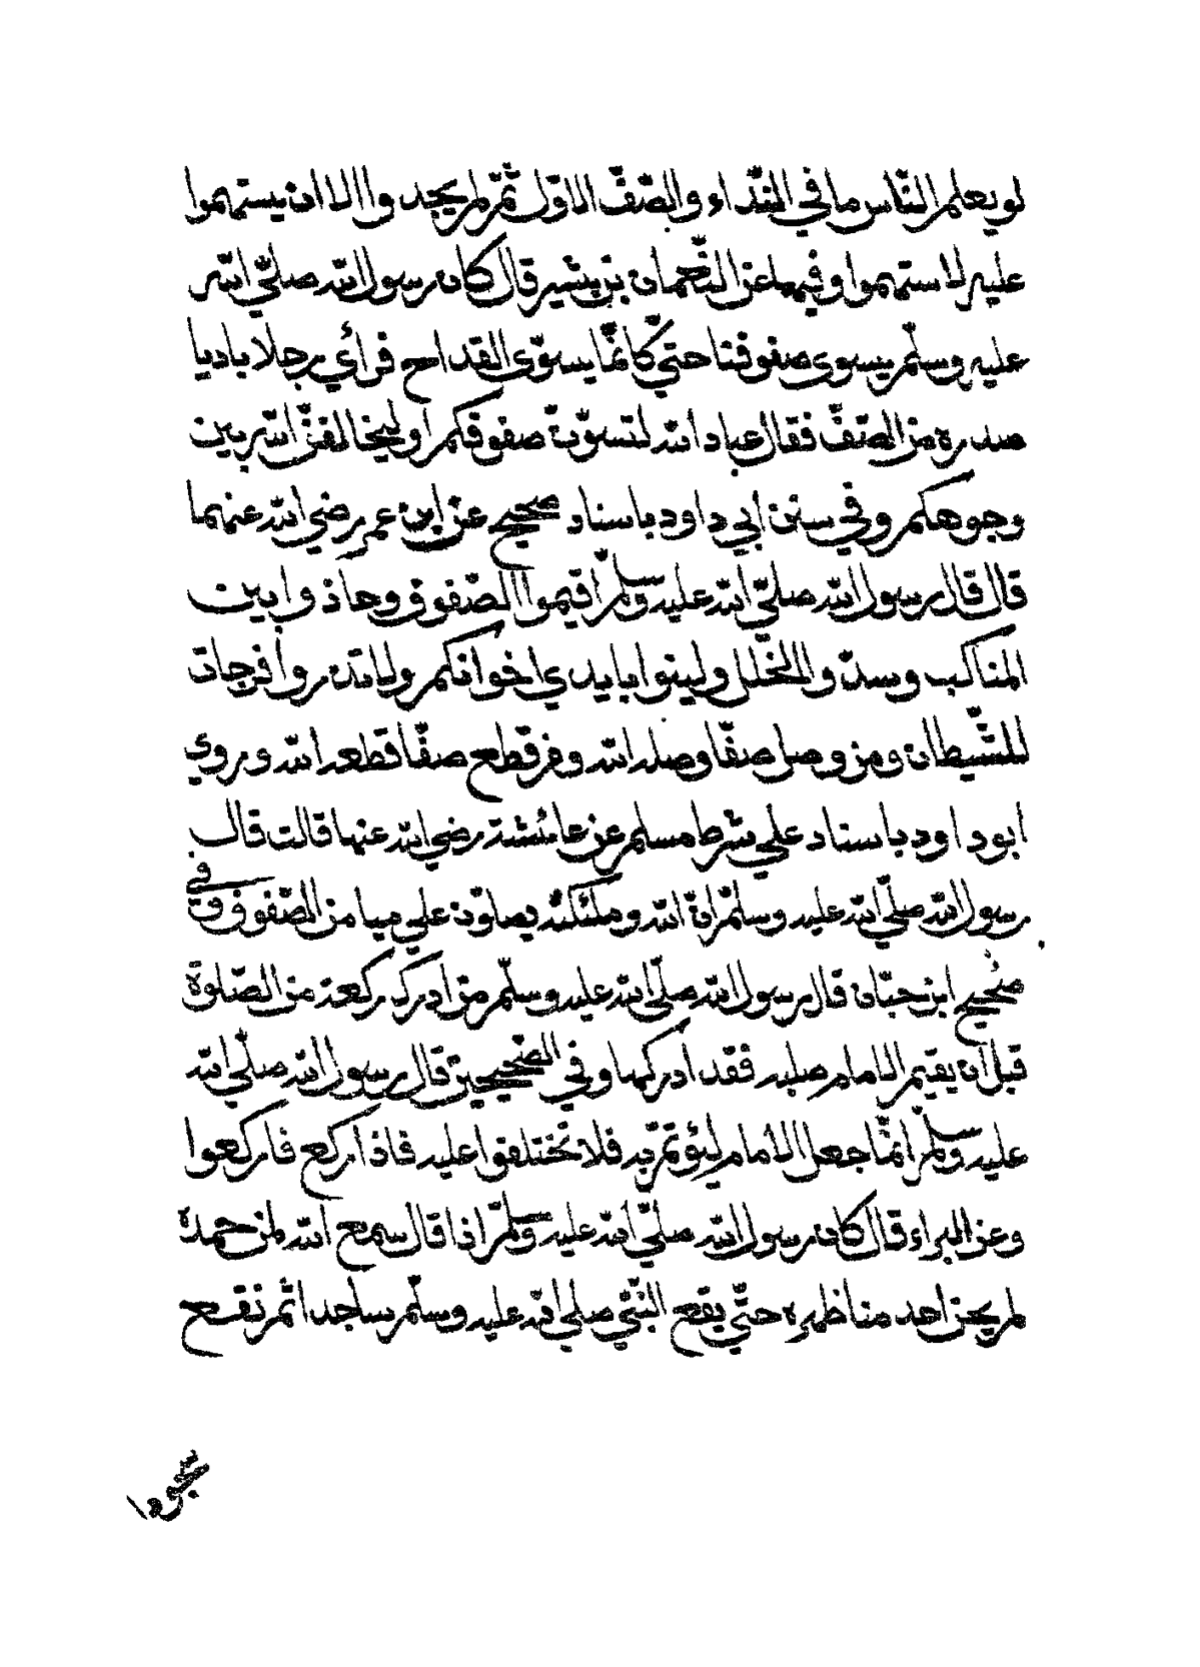 لو يعلم النّاس ما في النّداء والصّفّ الاوّل ثمّ لم يجدوا الا ان يستهموا
عليه لاستهموا وفيهما عن النّعمان بن بشير قال كان رسول الله صلّي الله
عليه وسلّم يسوى صفوفنا حتي كانّما يسوّى القداح فرأي رجلا باديا
صدره من الصّفّ فقال عباد الله لتسوّنّ صفوفكم او ليخالفنّ الله بين
وجوهكم وفي سنن ابي داود باسناد صحيح عن ابن عمر رضي الله عنهما
قال قال رسول الله صلّي الله عليه وسلّم اقيموا الصّفوف وحاذوا بين
المناكب وسدّوا الخلل ولينوا بايدي اخوانكم ولا تذروا فرجات
للشّيطان ومن وصل صفّا وصله الله ومن قطع صفّا قطعه الله وروي
ابو داود باسناد علي شرط مسلم عن عائشة رضي الله عنها قالت قال
رسول الله صلّي الله عليه وسلّم انّ الله وملئكته يصلّون علي ميامن الصّفوف وفي
صحيح ابن حبّان قال رسول الله صلّي الله عليه وسلّم من أدرك ركعة من الصّلوة
قبل ان يقيم الامام صلبه فقد أدركها وفي الصّحيحين قال رسول الله صلّي الله
عليه وسلّم انّما جعل الامام ليؤتمّ به فلا تختلفوا عليه فاذا ركع فاركعوا
وعن البراء قال كان رسول الله صلّي الله عليه وسلّم اذا قال سمع الله لمن حمده
لم يحن احد منا ظهره حتّي يقع النّبيّ صلي الله عليه وسلّم ساجدا ثمّ نقع
سجودا